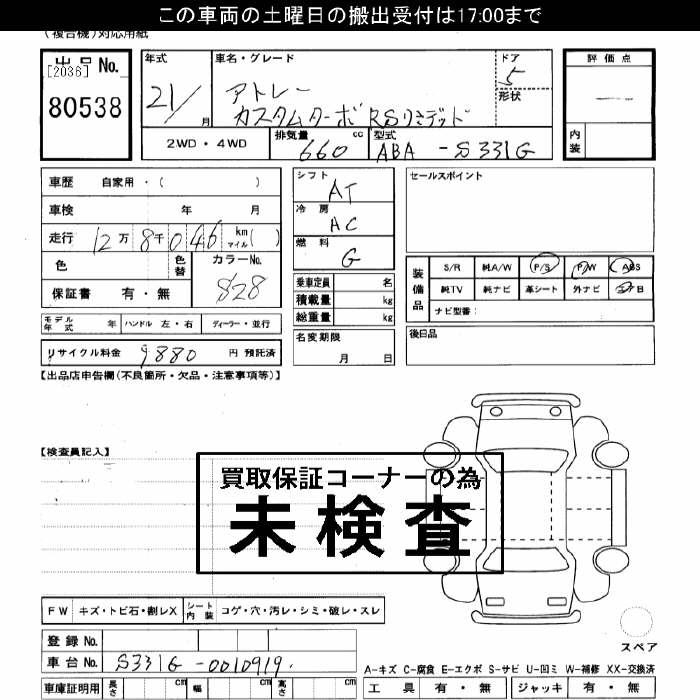 この車両の土曜日の搬出受付は17:00まで
(複合機)対応用紙
出品 No.
[2036]
80538
年式
21/
月
車名・グレード
アトレー
カスタムターボ RSリミテッド
ドア
5
形状
評価点
内装
2WD・4WD
排気量
660
cc
型式
ABA -S331G
車歴 自家用・( )
車検 年 月
走行 12万 8千046 km マイル( )
色
色替
カラーNo.
S28
保証書 有・無
シフト
AT
冷房
AC
燃料
G
乗車定員 名
積載量 kg
総重量 kg
セールスポイント
装備品
S/R 純A/W P/S P/W ABS
純TV 純ナビ 革シート 外ナビ
ナビ型番:
モデル年式 年 ハンドル 左・右 ディーラー・並行
名変期限
月 日
後日品
リサイクル料金 9880 円 預託済
【出品店申告欄(不良箇所・欠品・注意事項等)】
【検査員記入】
買取保証コーナーの為
未検査
FW キズ・トビ石・割レX シート内装 コゲ・穴・汚レ・シミ・破レ・スレ
スペア
登録 No.
車台 No. S331G-0010919.
A-キズ C-腐食 E-エクボ S-サビ U-凹ミ W-補修 XX-交換済
車庫証明用 長さ cm 幅 cm 高さ cm
工具 有・無 ジャッキ 有・無